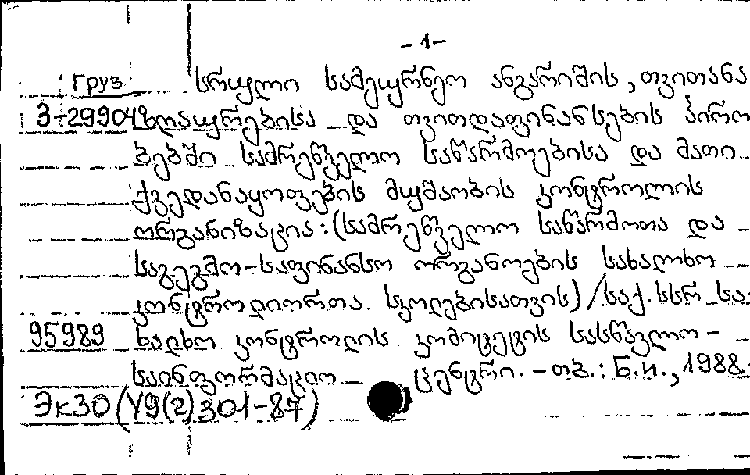 -1-
Груз
სრული სამეურნეო ანგარიშის, თვითანა
3-29904
ზღაურებისა და თვითდაფინანსების პირო
ბებში სამრეწველო საწარმოებისა და მათი
ქვედანაყოფების მუშაობის კონტროლის
ორგანიზაცია: (სამრეწველო საწარმოთა და
საგეგმო-საფინანსო ორგანოების სახალხო
კონტროლიორთა სკოლებისათვის) / საქ. სსრ სა
95989 ხალხო კონტროლის კომიტეტის სასწავლო-
საინფორმაციო ცენტრი. - თბ.: Б.и., 1988
Эк30(У9(2)301-87)